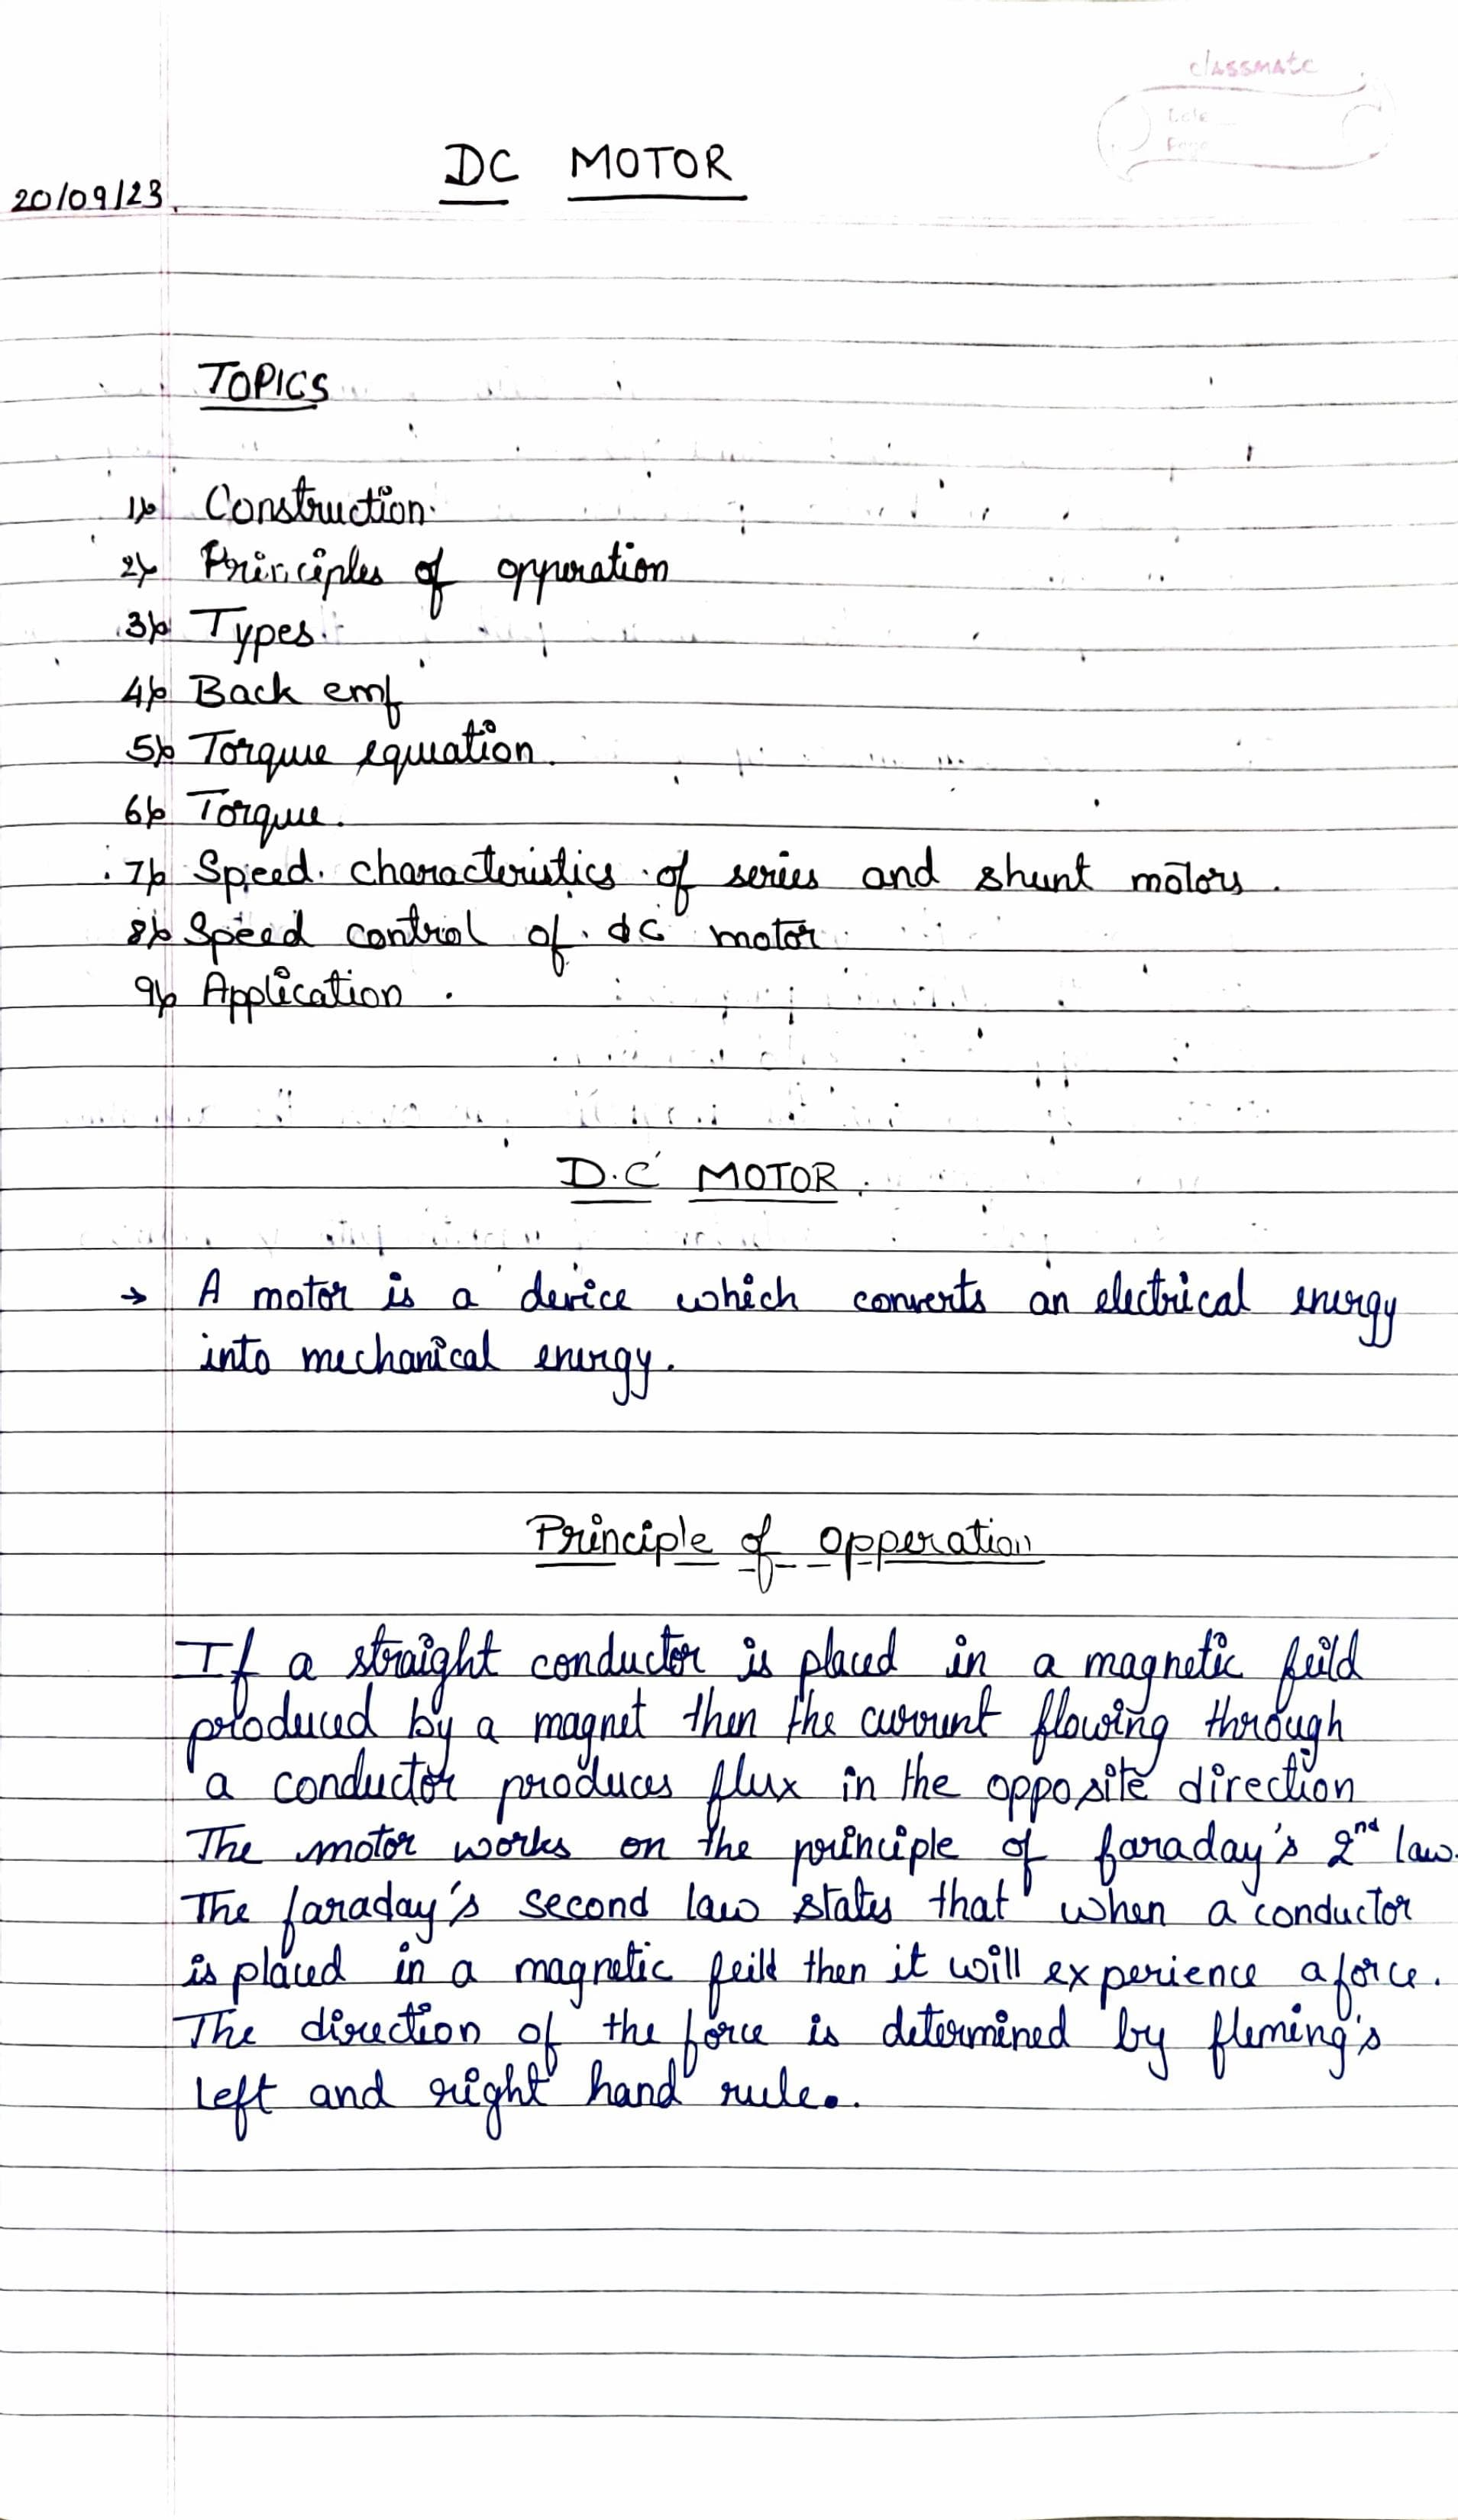 classmate
Date
Page
DC MOTOR
20/09/23
TOPICS
1) Construction.
2) Principles of opperation
3) Types.
4) Back emf
5) Torque equation.
6) Torque.
7) Speed. characteristics of series and shunt motors.
8) Speed control of dc motor
9) Application.
D.C MOTOR.
→ A motor is a device which converts an electrical energy
into mechanical energy.
Principle of opperation
If a straight conductor is placed in a magnetic feild
produced by a magnet then the current flowing through
a conductor produces flux in the opposite direction
The motor works on the principle of faraday's 2nd law.
The faraday's second law states that when a conductor
is placed in a magnetic feild then it will experience a force.
The direction of the force is determined by fleming's
left and right hand rule.